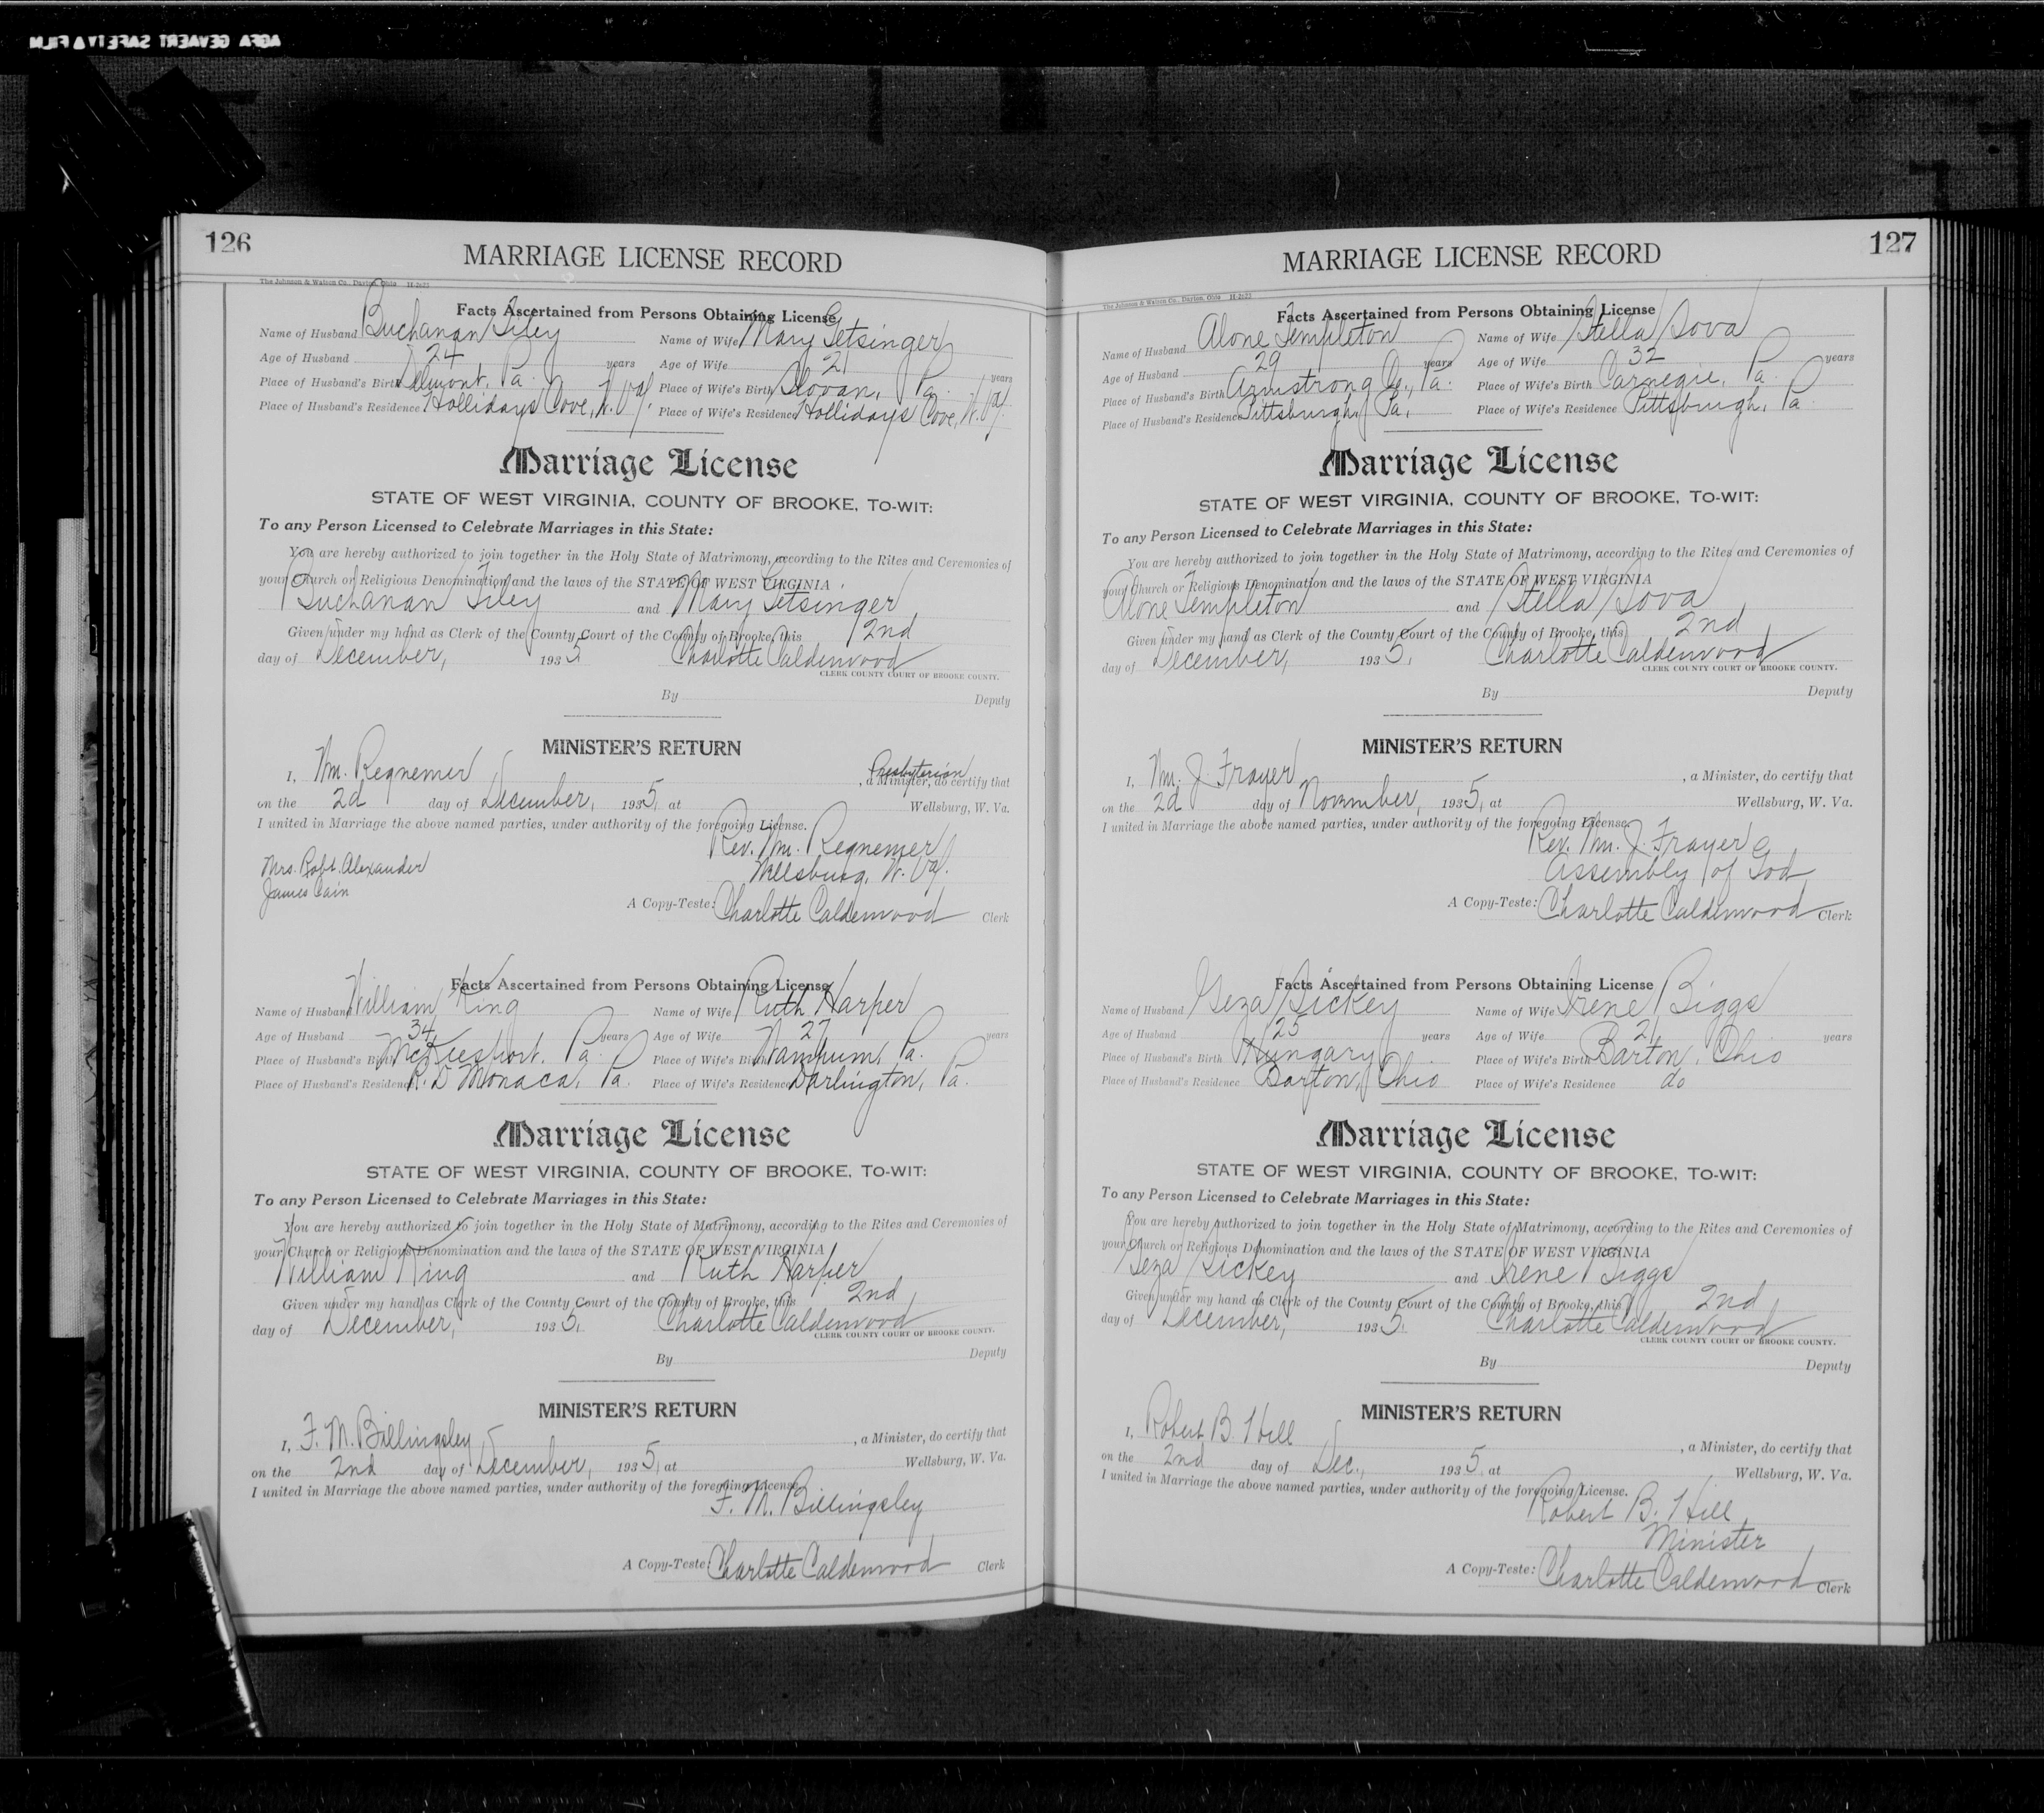 AGFA GEVAERT SAFETY FILM
126
MARRIAGE LICENSE RECORD
The Johnson & Watson Co., Dayton, Ohio
Facts Ascertained from Persons Obtaining License
Name of Husband Buchanan Tiley Name of Wife Mary Getsinger
Age of Husband 24 years Age of Wife 21 years
Place of Husband's Birth Delmont, Pa. Place of Wife's Birth Slovan, Pa.
Place of Husband's Residence Hollidays Cove, W. Va. Place of Wife's Residence Hollidays Cove, W. Va.
Marriage License
STATE OF WEST VIRGINIA, COUNTY OF BROOKE, TO-WIT:
To any Person Licensed to Celebrate Marriages in this State:
You are hereby authorized to join together in the Holy State of Matrimony, according to the Rites and Ceremonies of
your Church or Religious Denomination and the laws of the STATE OF WEST VIRGINIA
Buchanan Tiley and Mary Getsinger
Given under my hand as Clerk of the County Court of the County of Brooke, this 2nd
day of December, 1935, Charlotte Caldenwood
CLERK COUNTY COURT OF BROOKE COUNTY.
By Deputy
MINISTER'S RETURN
Presbyterian
I, Wm. Regnemer, a Minister, do certify that
on the 2d day of December, 1935, at Wellsburg, W. Va.
I united in Marriage the above named parties, under authority of the foregoing License.
Rev. Wm. Regnemer
Mrs. Robt. Alexander Wellsburg, W. Va.
James Cain
A Copy-Teste: Charlotte Caldenwood Clerk
Facts Ascertained from Persons Obtaining License
Name of Husband William King Name of Wife Ruth Harper
Age of Husband 34 years Age of Wife 27 years
Place of Husband's Birth McKeesport, Pa. Place of Wife's Birth Wampum, Pa.
Place of Husband's Residence R. D Monaca, Pa. Place of Wife's Residence Darlington, Pa.
Marriage License
STATE OF WEST VIRGINIA, COUNTY OF BROOKE, TO-WIT:
To any Person Licensed to Celebrate Marriages in this State:
You are hereby authorized to join together in the Holy State of Matrimony, according to the Rites and Ceremonies of
your Church or Religious Denomination and the laws of the STATE OF WEST VIRGINIA
William King and Ruth Harper
Given under my hand as Clerk of the County Court of the County of Brooke, this 2nd
day of December, 1935, Charlotte Caldenwood
CLERK COUNTY COURT OF BROOKE COUNTY.
By Deputy
MINISTER'S RETURN
I, F. M. Billingsley, a Minister, do certify that
on the 2nd day of December, 1935, at Wellsburg, W. Va.
I united in Marriage the above named parties, under authority of the foregoing License.
F. M. Billingsley
A Copy-Teste: Charlotte Caldenwood Clerk
127
MARRIAGE LICENSE RECORD
The Johnson & Watson Co., Dayton, Ohio
Facts Ascertained from Persons Obtaining License
Name of Husband Alone Templeton Name of Wife Stella Sova
Age of Husband 29 years Age of Wife 32 years
Place of Husband's Birth Armstrong Co., Pa. Place of Wife's Birth Carnegie, Pa.
Place of Husband's Residence Pittsburgh, Pa, Place of Wife's Residence Pittsburgh, Pa
Marriage License
STATE OF WEST VIRGINIA, COUNTY OF BROOKE, TO-WIT:
To any Person Licensed to Celebrate Marriages in this State:
You are hereby authorized to join together in the Holy State of Matrimony, according to the Rites and Ceremonies of
your Church or Religious Denomination and the laws of the STATE OF WEST VIRGINIA
Alone Templeton and Stella Sova
Given under my hand as Clerk of the County Court of the County of Brooke, this 2nd
day of December, 1935, Charlotte Caldenwood
CLERK COUNTY COURT OF BROOKE COUNTY.
By Deputy
MINISTER'S RETURN
I, Wm. J. Frayer, a Minister, do certify that
on the 2d day of November, 1935, at Wellsburg, W. Va.
I united in Marriage the above named parties, under authority of the foregoing License.
Rev. Wm. J. Frayer
Assembly of God
A Copy-Teste: Charlotte Caldenwood Clerk
Facts Ascertained from Persons Obtaining License
Name of Husband Geza Sickey Name of Wife Irene Biggs
Age of Husband 25 years Age of Wife 21 years
Place of Husband's Birth Hungary Place of Wife's Birth Barton, Ohio
Place of Husband's Residence Barton, Ohio Place of Wife's Residence do
Marriage License
STATE OF WEST VIRGINIA, COUNTY OF BROOKE, TO-WIT:
To any Person Licensed to Celebrate Marriages in this State:
You are hereby authorized to join together in the Holy State of Matrimony, according to the Rites and Ceremonies of
your Church or Religious Denomination and the laws of the STATE OF WEST VIRGINIA
Geza Sickey and Irene Biggs
Given under my hand as Clerk of the County Court of the County of Brooke, this 2nd
day of December, 1935, Charlotte Caldenwood
CLERK COUNTY COURT OF BROOKE COUNTY.
By Deputy
MINISTER'S RETURN
I, Robert B. Hill, a Minister, do certify that
on the 2nd day of Dec., 1935, at Wellsburg, W. Va.
I united in Marriage the above named parties, under authority of the foregoing License.
Robert B. Hill
Minister
A Copy-Teste: Charlotte Caldenwood Clerk